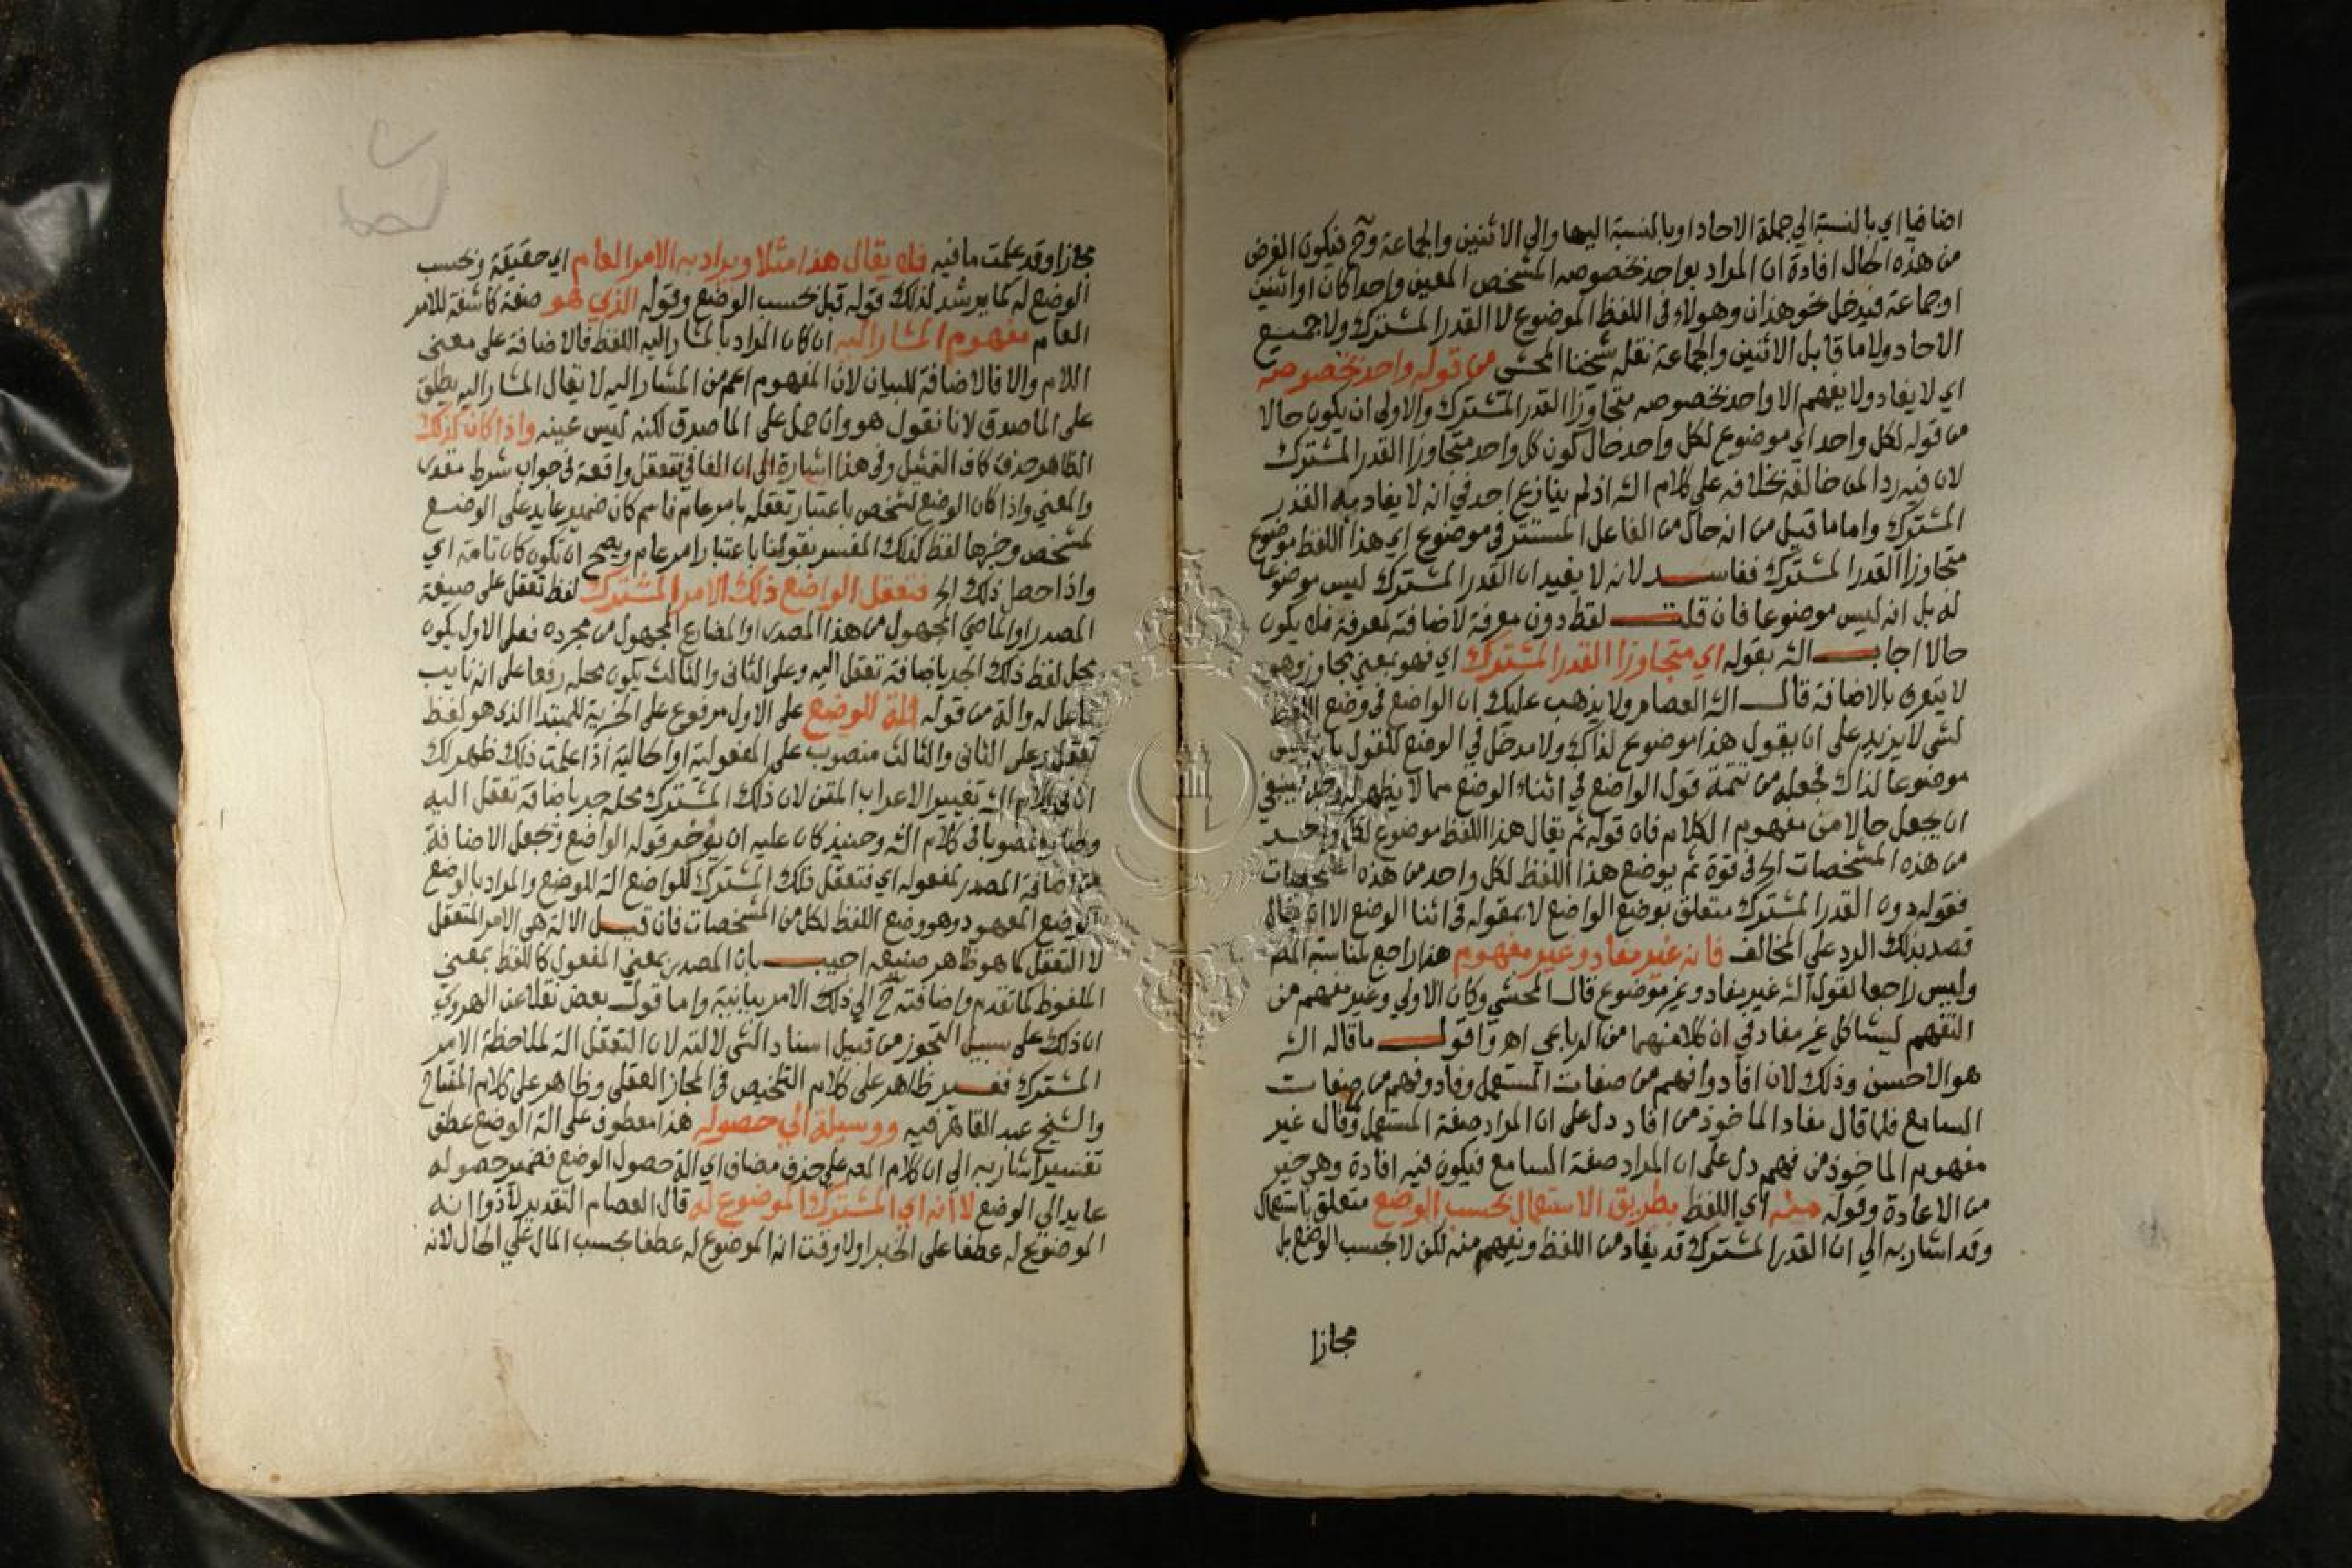 اضافيا اي بالنسبة الي جملة الاحاد او بالنسبة اليها والي الاثنين والجماعة وح فيكون الغرض
من هذه الحال افادة ان المراد بواحد بخصوصه المشخص المعين واحدا كان او اثنين
او جماعة فيدخل نحو هذان وهولاء في اللفظ الموضوع لا القدر المشترك ولا جميع
الاحاد ولا ما قابل الاثنين والجماعة نقله شيخنا المحشي من قوله واحد بخصوصه
اي لا يفاد ولا يفهم الا واحد بخصوصه متجاوزا القدر المشترك والاولى ان يكون حالا
من قوله لكل واحد اي موضوع لكل واحد حال كون كل واحد متجاوزا القدر المشترك
لان فيه ردا لمن خالفه بخلافه علي كلام الش اذ لم ينازع احد في انه لا يفاد به القدر
المشترك واما ما قيل من انه حال من الفاعل المستتر في موضوع اي هذا اللفظ موضوع
متجاوزا القدر المشترك ففاسد لانه لا يفيد ان القدر المشترك ليس موضوعا
له بل انه ليس موضوعا فان قلت لفظ دون معرفة لاضافته لمعرفة فلا يكون
حالا اجاب الش بقوله اي متجاوزا القدر المشترك اي فهو بمعني مجاوز وهو
لا يتعرف بالاضافة قال الش العصام ولا يذهب عليك ان الواضع في وضع اللفظ
لشي لا يزيد على ان يقول هذا موضوع لذاك ولا مدخل في الوضع للقول بانه ليس
موضوعا لذاك فجعله من تتمة قول الواضع في اثناء الوضع مما لا يظهر له وجه فينبغي
ان يجعل حالا من مفهوم الكلام فان قوله ثم يقال هذا اللفظ موضوع لكل واحد
من هذه المشخصات الخ في قوة ثم يوضع هذا اللفظ لكل واحد من هذه المشخصات
فقوله دون القدر المشترك متعلق بوضع الواضع لا بمقوله في اثنا الوضع الا ان يقال
قصد بذلك الرد علي المخالف فانه غير مفاد وغير مفهوم هذا راجع لمناسبة المص
وليس راجعا لقول الش غير يفاد وغير موضوع قال المحشي وكان الاولي وغير مفهم من
التفهم ليشاكل غير مفاد في ان كلا منهما من الرباعي اهـ واقول ما قاله الش
هو الاحسن وذلك لان افاد وافهم من صفات المستعمل وفاد وفهم من صفات
السامع فلما قال مفاد الماخوذ من افاد دل على ان المراد صفة المستعمل وقال غير
مفهوم الماخوذ من فهم دل على ان المراد صفة السامع فيكون فيه افادة وهي خير
من الاعادة وقوله منه اي اللفظ بطريق الاستعمال بحسب الوضع متعلق باستعمال
وقد اشار به الي ان القدر المشترك قد يفاد من اللفظ ويفهم منه لكن لا بحسب الوضع بل
مجازا
مجازا وقد علمت ما فيه فلا يقال هذا مثلا ويراد به الامر العام اي حقيقة وبحسب
الوضع له كما يرشد لذلك قوله قبل بحسب الوضع وقوله الذي هو صفة كاشفة للامر
العام مفهوم المشار اليه ان كان المراد بالمشار اليه اللفظ فالاضافة على معني
اللام والا فالاضافة للبيان لان المفهوم اعم من المشار اليه لا يقال المشار اليه يطلق
على الماصدق لانا نقول هو وان حمل على الماصدق لكنه ليس عينه واذا كان كذلك
الظاهر حذف كاف التمثيل وفي هذا اشارة الى ان الفا في فتعقل واقعة في جواب شرط مقدر
والمعني واذا كان الوضع لمشخص باعتبار تعقله بامر عام فاسم كان ضمير عايد على الوضع
لمشخص وخبرها لفظ كذلك المفسر بقولنا باعتبار امر عام ويصح ان تكون كان تامة اي
واذا حصل ذلك الخ فتعقل الواضع ذلك الامر المشترك لفظ تعقل على صيغة
المصدر او الماضي المجهول من هذا المصدر او المضارع المجهول من مجرده فعلى الاول يكون
محل لفظ ذلك الجر باضافة تعقل اليه وعلى الثاني والثالث يكون محله رفعا على انه نايب
فاعل له والة من قوله الة للوضع على الاول مرفوع على الخبرية للمبتدا الذي هو لفظ
تعقل وعلى الثاني والثالث منصوب على المفعولية او الحالية اذا علمت ذلك ظهر لك
ان في كلام الش تغيير الاعراب المتن لان ذلك المشترك محله جر باضافة تعقل اليه
وصار منصوبا في كلام الش وحينيذ كان عليه ان يؤخر قوله الواضع وتجعل الاضافة
من اضافة المصدر لمفعوله اي فتعقل ذلك المشترك للواضع الة للوضع والمراد بالوضع
الوضع المعهود وهو وضع اللفظ لكل من المشخصات فان قيل الالة هي الامر المتعقل
لا التعقل كما هو ظاهر صنيعه اجيب بان المصدر بمعني المفعول كاللفظ بمعني
الملفوظ كما تقدم واضافته ح الي ذلك الامر بيانية واما قول بعض نقلا عن الهروي
ان ذلك على سبيل التجوز من قبيل اسناد الشي لالته لان التعقل الة لملاحظة الامر
المشترك فغير ظاهر على كلام التلخيص في المجاز العقلي وظاهر على كلام المفتاح
والشيخ عبد القاهر فيه ووسيلة الي حصوله هذا معطوف على الة الوضع عطف
تفسير اشار به الي ان كلام المص علي حذف مضاف اي الة حصول الوضع فضمير حصوله
عايد الي الوضع لا انه اي المشترك الموضوع له قال العصام التقدير لا ذوا انه
الموضوع له عطفا على الخبر او لا وقت انه الموضوع له عطفا بحسب المال علي الحال لانه